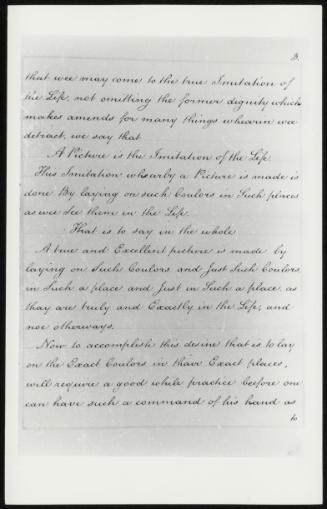 3.
that wee may come to the true Imitation of
the Life, not omitting the former dignity which
makes amends for many things whearin wee
detract, we say that
A Picture is the Imitation of the Life
This Imitation wheerby a Picture is made is
done By laying on such Coulors in Such places
as we See them in the Life.
That is to say in the whole
A true and Excellent picture is made by
laying on Such Coulors and Just Such Coulors
in Such a place and Just in Such a place, as
thay are truly and Exactly in the Life, and
noe otherways.
Now to accomplish this desine that is to lay
on the Exact Coulors in thair Exact places,
will require a good while practice beefore one
can have such a command of his hand as
to